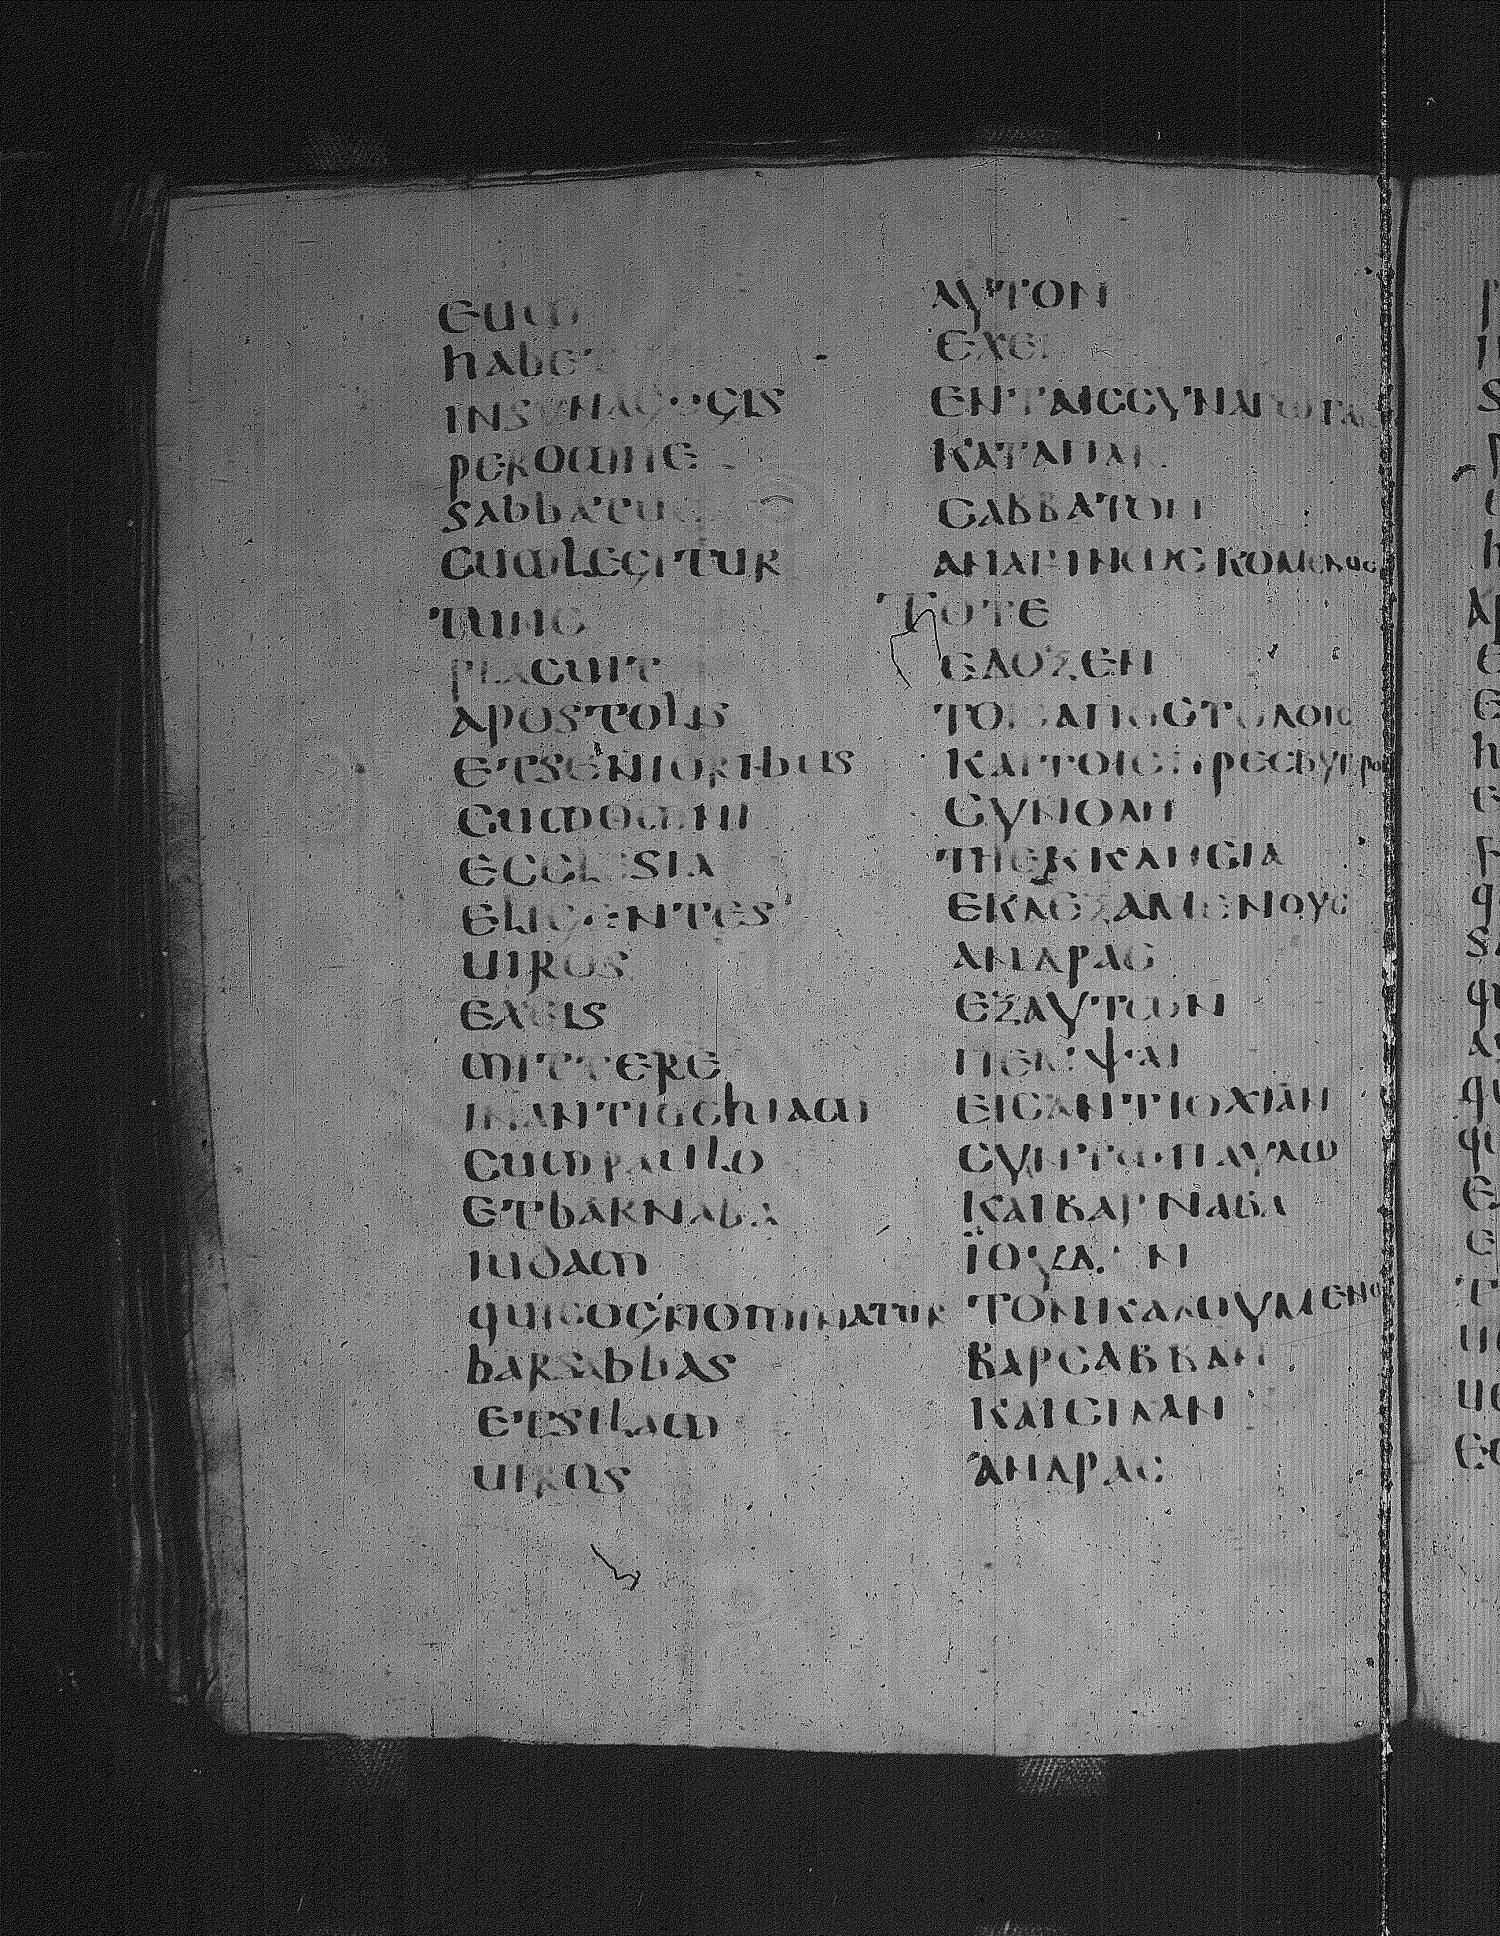 eum
habet
insynagogis
peromne
sabbatum
cumlegitur
Tunc
placuit
apostolis
etsenioribus
cumomni
ecclesia
eligentes
uiros
exeis
mittere
inantiochiam
cumpaulo
etbarnaba
iudam
quicognominatur
barsabbas
etsilam
uiros
ΑΥΤΟΝ
ΕΧΕΙ
ΕΝΤΑΙCCΥΝΑΓΩΓΑΙC
ΚΑΤΑΠΑΝ
CΑΒΒΑΤΟΝ
ΑΝΑΓΙΝΩCΚΟΜΕΝΟC
ΤΟΤΕ
ΕΔΟΞΕΝ
ΤΟΙCΑΠΟCΤΟΛΟΙC
ΚΑΙΤΟΙCΠΡΕCΒΥΤΕΡΟΙC
CΥΝΟΛΗ
ΤΗΕΚΚΛΗCΙΑ
ΕΚΛΕΞΑΜΕΝΟΥC
ΑΝΔΡΑC
ΕΞΑΥΤΩΝ
ΠΕΜΨΑΙ
ΕΙCΑΝΤΙΟΧΙΑΝ
CΥΝΤΩΠΑΥΛΩ
ΚΑΙΒΑΡΝΑΒΑ
ΪΟΥΔΑΝ
ΤΟΝΚΑΛΟΥΜΕΝΟ
ΒΑΡCΑΒΒΑΝ
ΚΑΙCΙΛΑΝ
ΑΝΔΡΑC